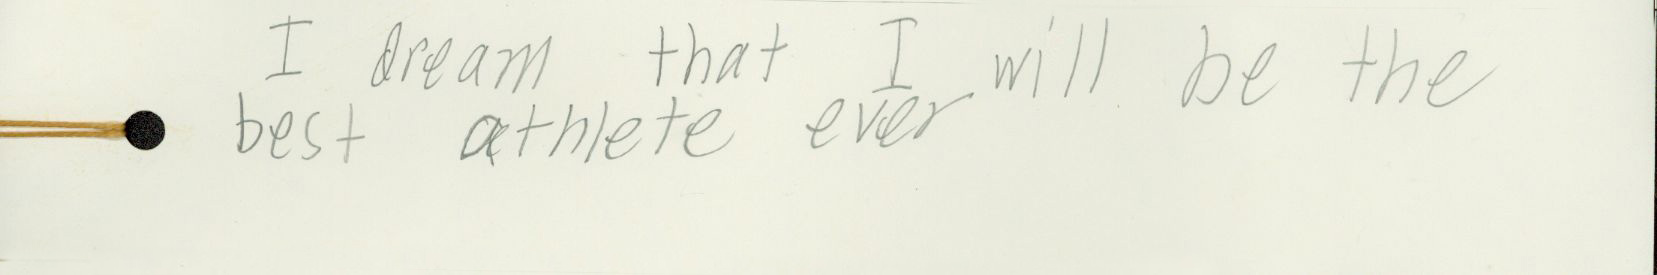 I dream that I will be the
best athlete ever